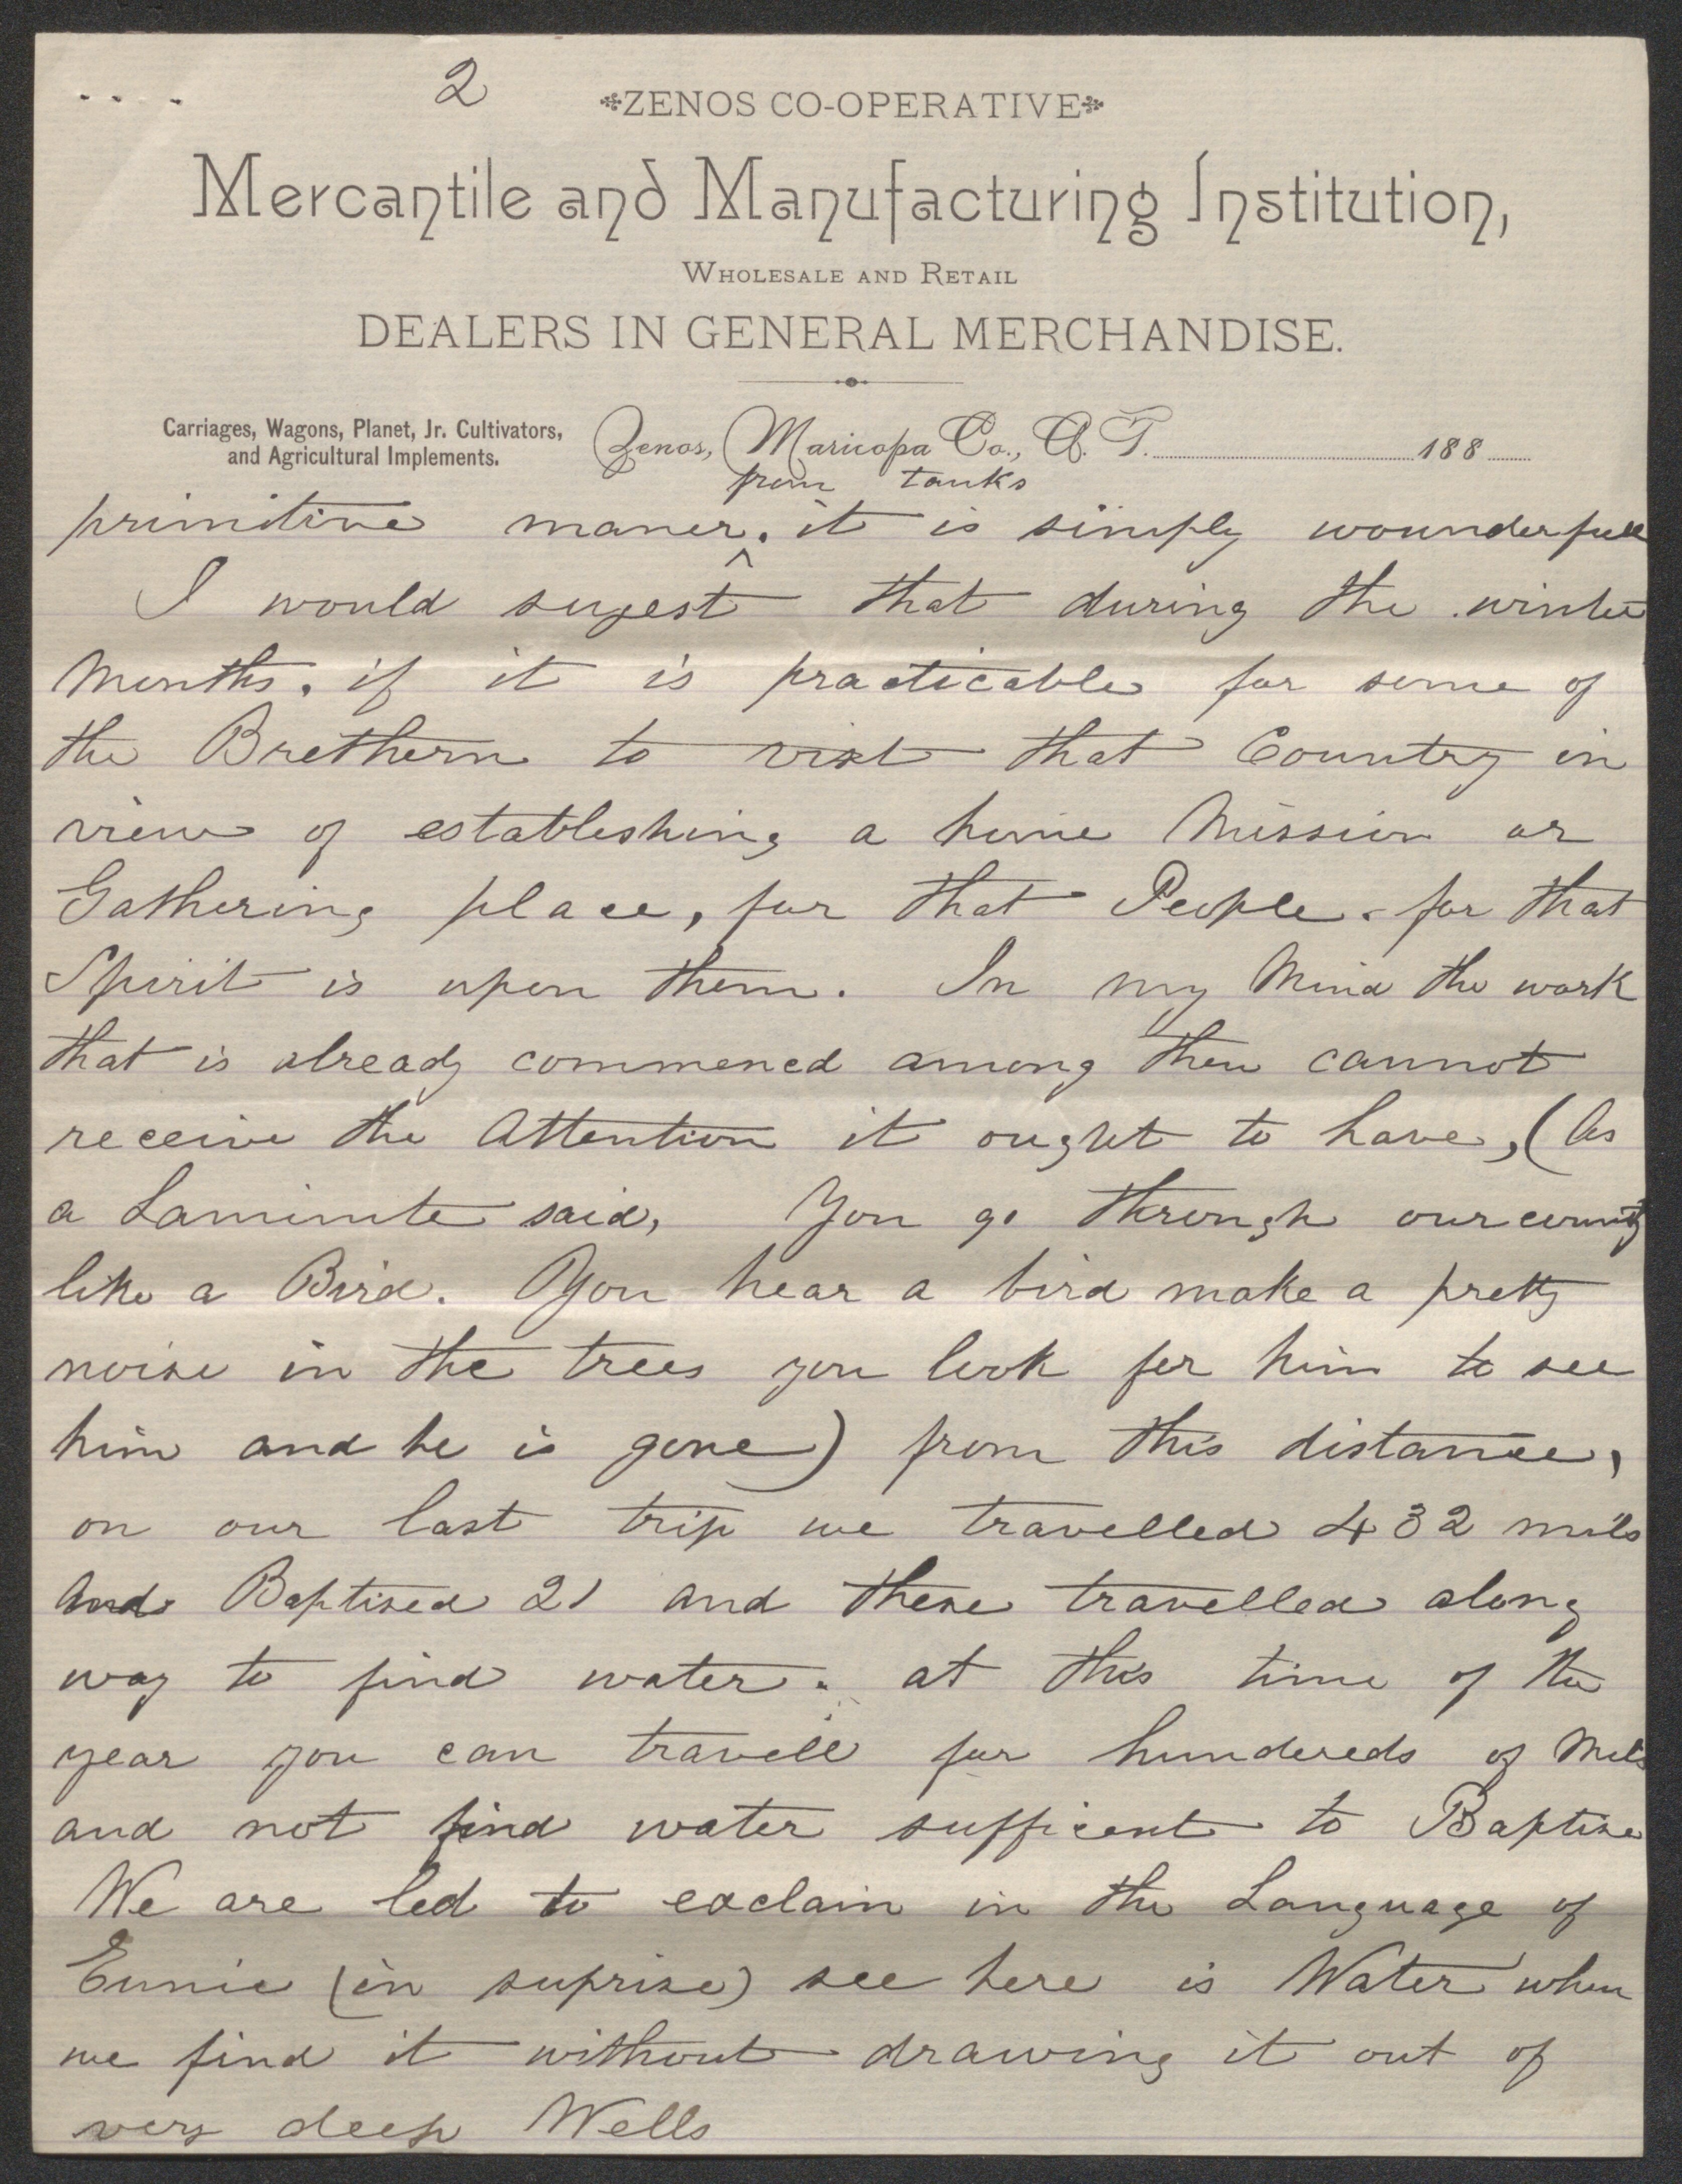 2
ZENOS CO-OPERATIVE
Mercantile and Manufacturing Institution,
WHOLESALE AND RETAIL
DEALERS IN GENERAL MERCHANDISE.
Carriages, Wagons, Planet, Jr. Cultivators,
and Agricultural Implements.
Zenos, Maricopa Co., A. T. 188
from tanks
primitive maner. ^ it is simply wounderfull
I would sugest that during the winter
Months. if it is practicable for some of
the Brethern to visit that Country in
view of establishing a home Mission or
Gathering place, for that People. for that
Spirit is upon them. In my Mind the work
that is already commenced among them cannot
receive the Attention it ought to have, (As
a Laminite said, You go through our country
like a Bird. You hear a bird make a pretty
noise in the trees you look for him to see
him and he is gone) from this distance,
on our last trip we travelled 432 mils
and Baptised 21 and these travelled along
way to find water. at this time of the
year you can travell for hundereds of Mils
and not find water sufficent to Baptise
We are led to exclaim in the Language of
Eunic (in suprise) see here is Water when
we find it without drawing it out of
very deep Wells